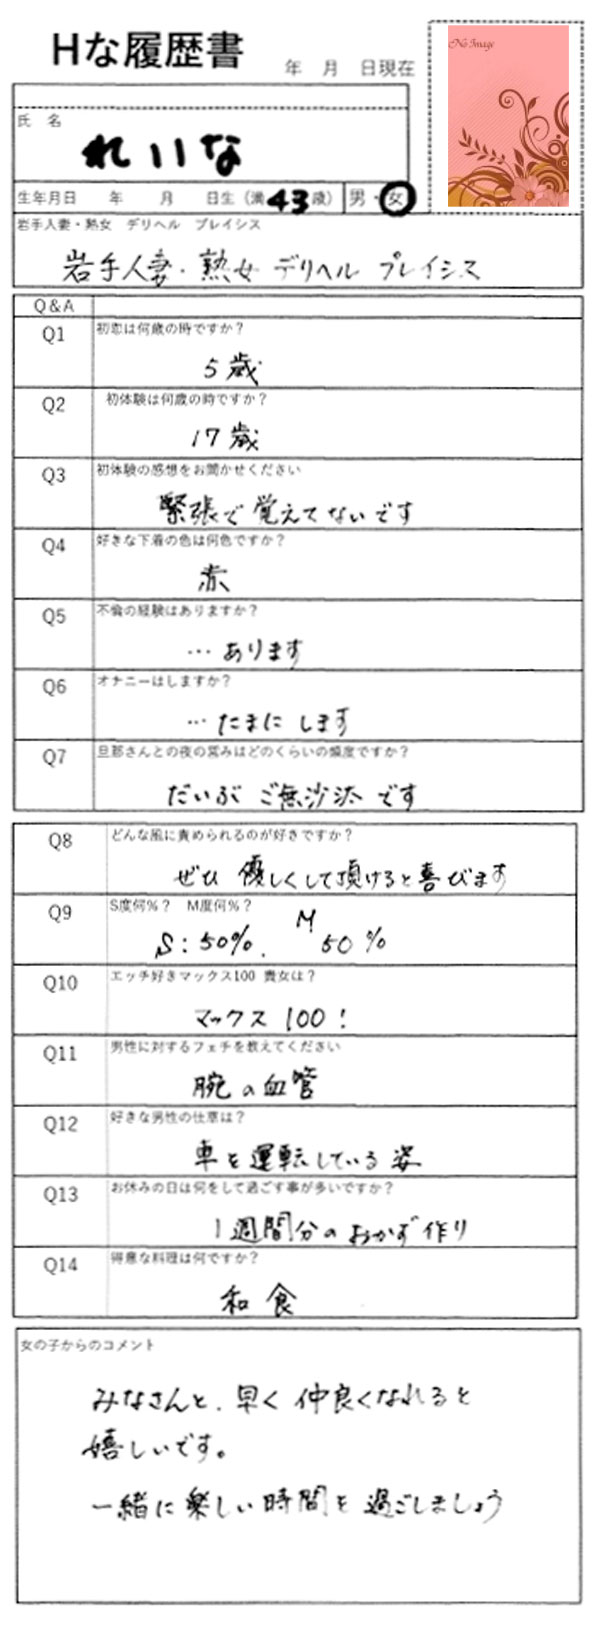 Hな履歴書
年 月 日現在
No Image
氏 名
れいな
生年月日 年 月 日生（満43歳）男・女
岩手人妻・熟女 デリヘル プレイシス
岩手人妻・熟女 デリヘル プレイシス
Q&A
Q1 初恋は何歳の時ですか？
5歳
Q2 初体験は何歳の時ですか？
17歳
Q3 初体験の感想をお聞かせください
緊張で覚えてないです
Q4 好きな下着の色は何色ですか？
赤
Q5 不倫の経験はありますか？
…あります
Q6 オナニーはしますか？
…たまにします
Q7 旦那さんとの夜の営みはどのくらいの頻度ですか？
だいぶご無沙汰です
Q8 どんな風に責められるのが好きですか？
ぜひ 優しくして頂けると喜びます
Q9 S度何％？ M度何％？
S：50％. M 50％
Q10 エッチ好きマックス100 貴女は？
マックス 100！
Q11 男性に対するフェチを教えてください
腕の血管
Q12 好きな男性の仕草は？
車を運転している姿
Q13 お休みの日は何をして過ごす事が多いですか？
1週間分のおかず作り
Q14 得意な料理は何ですか？
和食
女の子からのコメント
みなさんと、早く仲良くなれると
嬉しいです。
一緒に楽しい時間を過ごしましょう